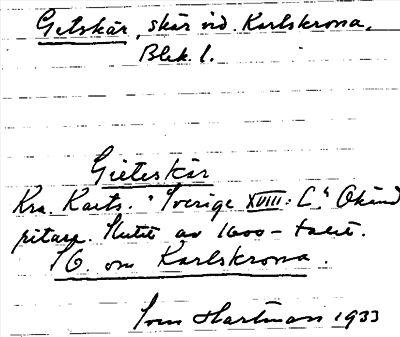 Getskär, skär vid Karlskrona.
Blek. l.
Gieteskär
Kra. Karts. "Sverige XVIII: C". Okänd
ritare. Slutet av 1600-talet.
SO. om Karlskrona.
Sven Hartman 1933